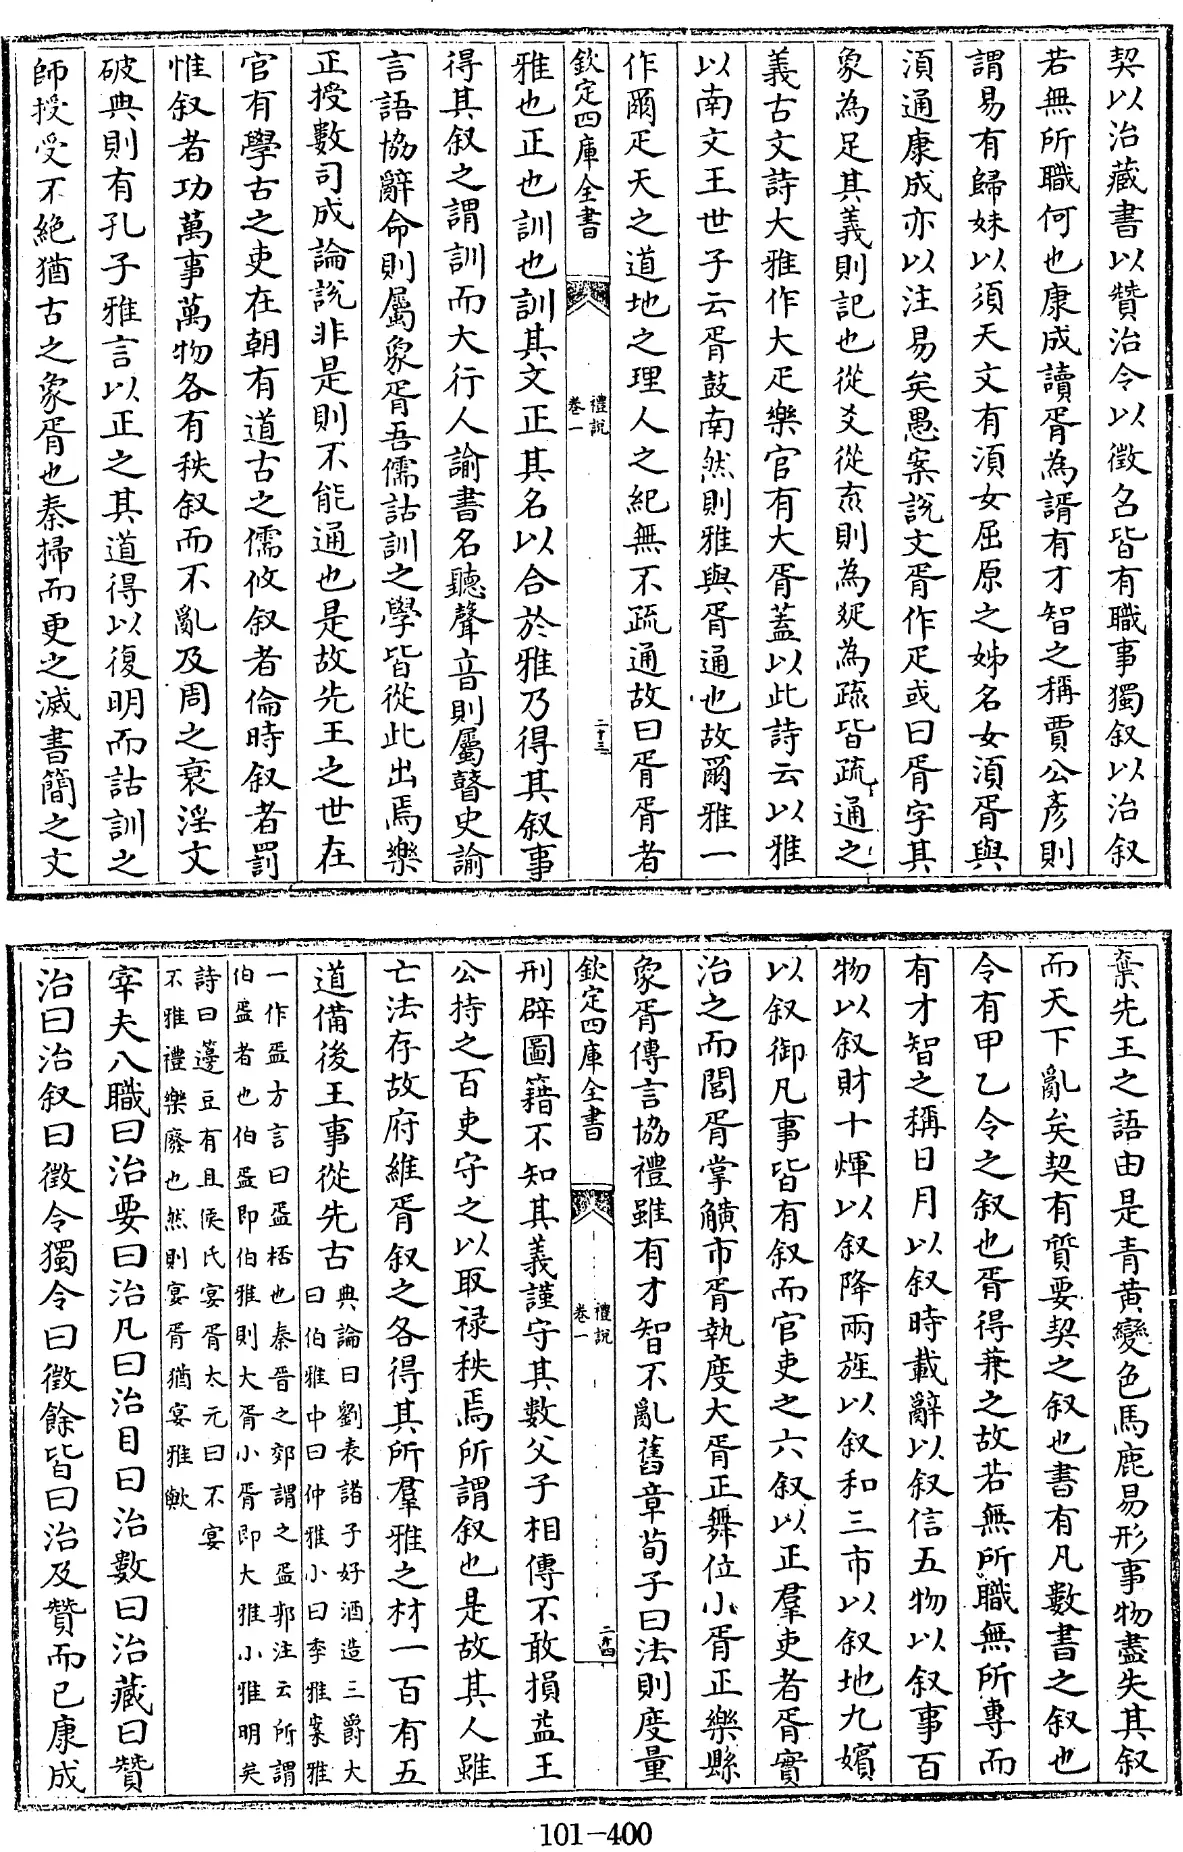 契以治藏書以贊治令以徵名皆有職事獨叙以治叙
若無所職何也康成讀胥為諝有才智之稱賈公彥則
謂易有歸妹以須天文有湏女屈原之姊名女湏胥與
湏通康成亦以注易矣愚案説文胥作疋或曰胥字其
象為足其義則記也從爻從㐬則為𤕟為疏皆疏通之
義古文詩大雅作大疋樂官有大胥蓋以此詩云以雅
以南文王世子云胥鼓南然則雅與胥通也故爾雅一
作爾疋天之道地之理人之紀無不疏通故曰胥胥者
欽定四庫全書
禮説
卷一
二十三
雅也正也訓也訓其文正其名以合於雅乃得其叙事
得其叙之謂訓而大行人諭書名聽聲音則屬瞽史諭
言語協辭命則屬象胥吾儒詁訓之學皆從此出焉樂
正授數司成論説非是則不能通也是故先王之世在
官有學古之吏在朝有道古之儒攸叙者倫時叙者罰
惟叙者功萬事萬物各有秩叙而不亂及周之衰淫文
破典則有孔子雅言以正之其道得以復明而詁訓之
師授受不絶猶古之象胥也秦掃而更之滅書簡之文
棄先王之語由是青黄變色馬鹿易形事物盡失其叙
而天下亂矣契有質要契之叙也書有凡數書之叙也
令有甲乙令之叙也胥得兼之故若無所職無所專而
有才智之稱日月以叙時載辭以叙信五物以叙事百
物以叙財十煇以叙降兩旌以叙和三市以叙地九嬪
以叙御凡事皆有叙而官吏之六叙以正羣吏者胥實
治之而閭胥掌觵市胥執度大胥正舞位小胥正樂縣
象胥傳言協禮雖有才智不亂舊章荀子曰法則度量
欽定四庫全書
禮説
卷一
二十四
刑辟圖籍不知其義謹守其數父子相傳不敢損益王
公持之百吏守之以取禄秩焉所謂叙也是故其人雖
亡法存故府維胥叙之各得其所羣雅之材一百有五
道備後王事從先古典論曰劉表諸子好酒造三爵大
曰伯雅中曰仲雅小曰季雅案雅
一作盃方言曰盃桮也秦晉之郊謂之盃郭注云所謂
伯盃者也伯盃即伯雅則大胥小胥即大雅小雅明矣
詩曰籩豆有且侯氏宴胥太元曰不宴
不雅禮樂廢也然則宴胥猶宴雅歟
宰夫八職曰治要曰治凡曰治目曰治數曰治藏曰贊
治曰治叙曰徵令獨令曰徵餘皆曰治及贊而已康成
101-400